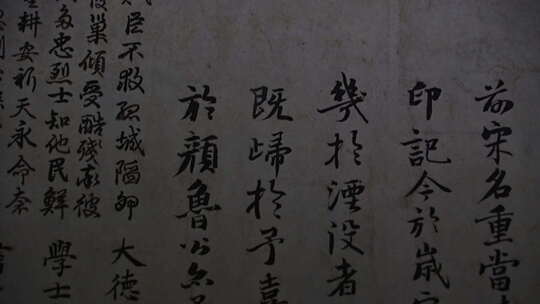 前宋名重當
印記今於歲
幾於湮没者
既歸於予喜
於顏魯公
臣不救孤城陷卵 大德
巢傾受酷殘 彼 學士
多忠烈士知他民鮮
耕安祈天永命奈